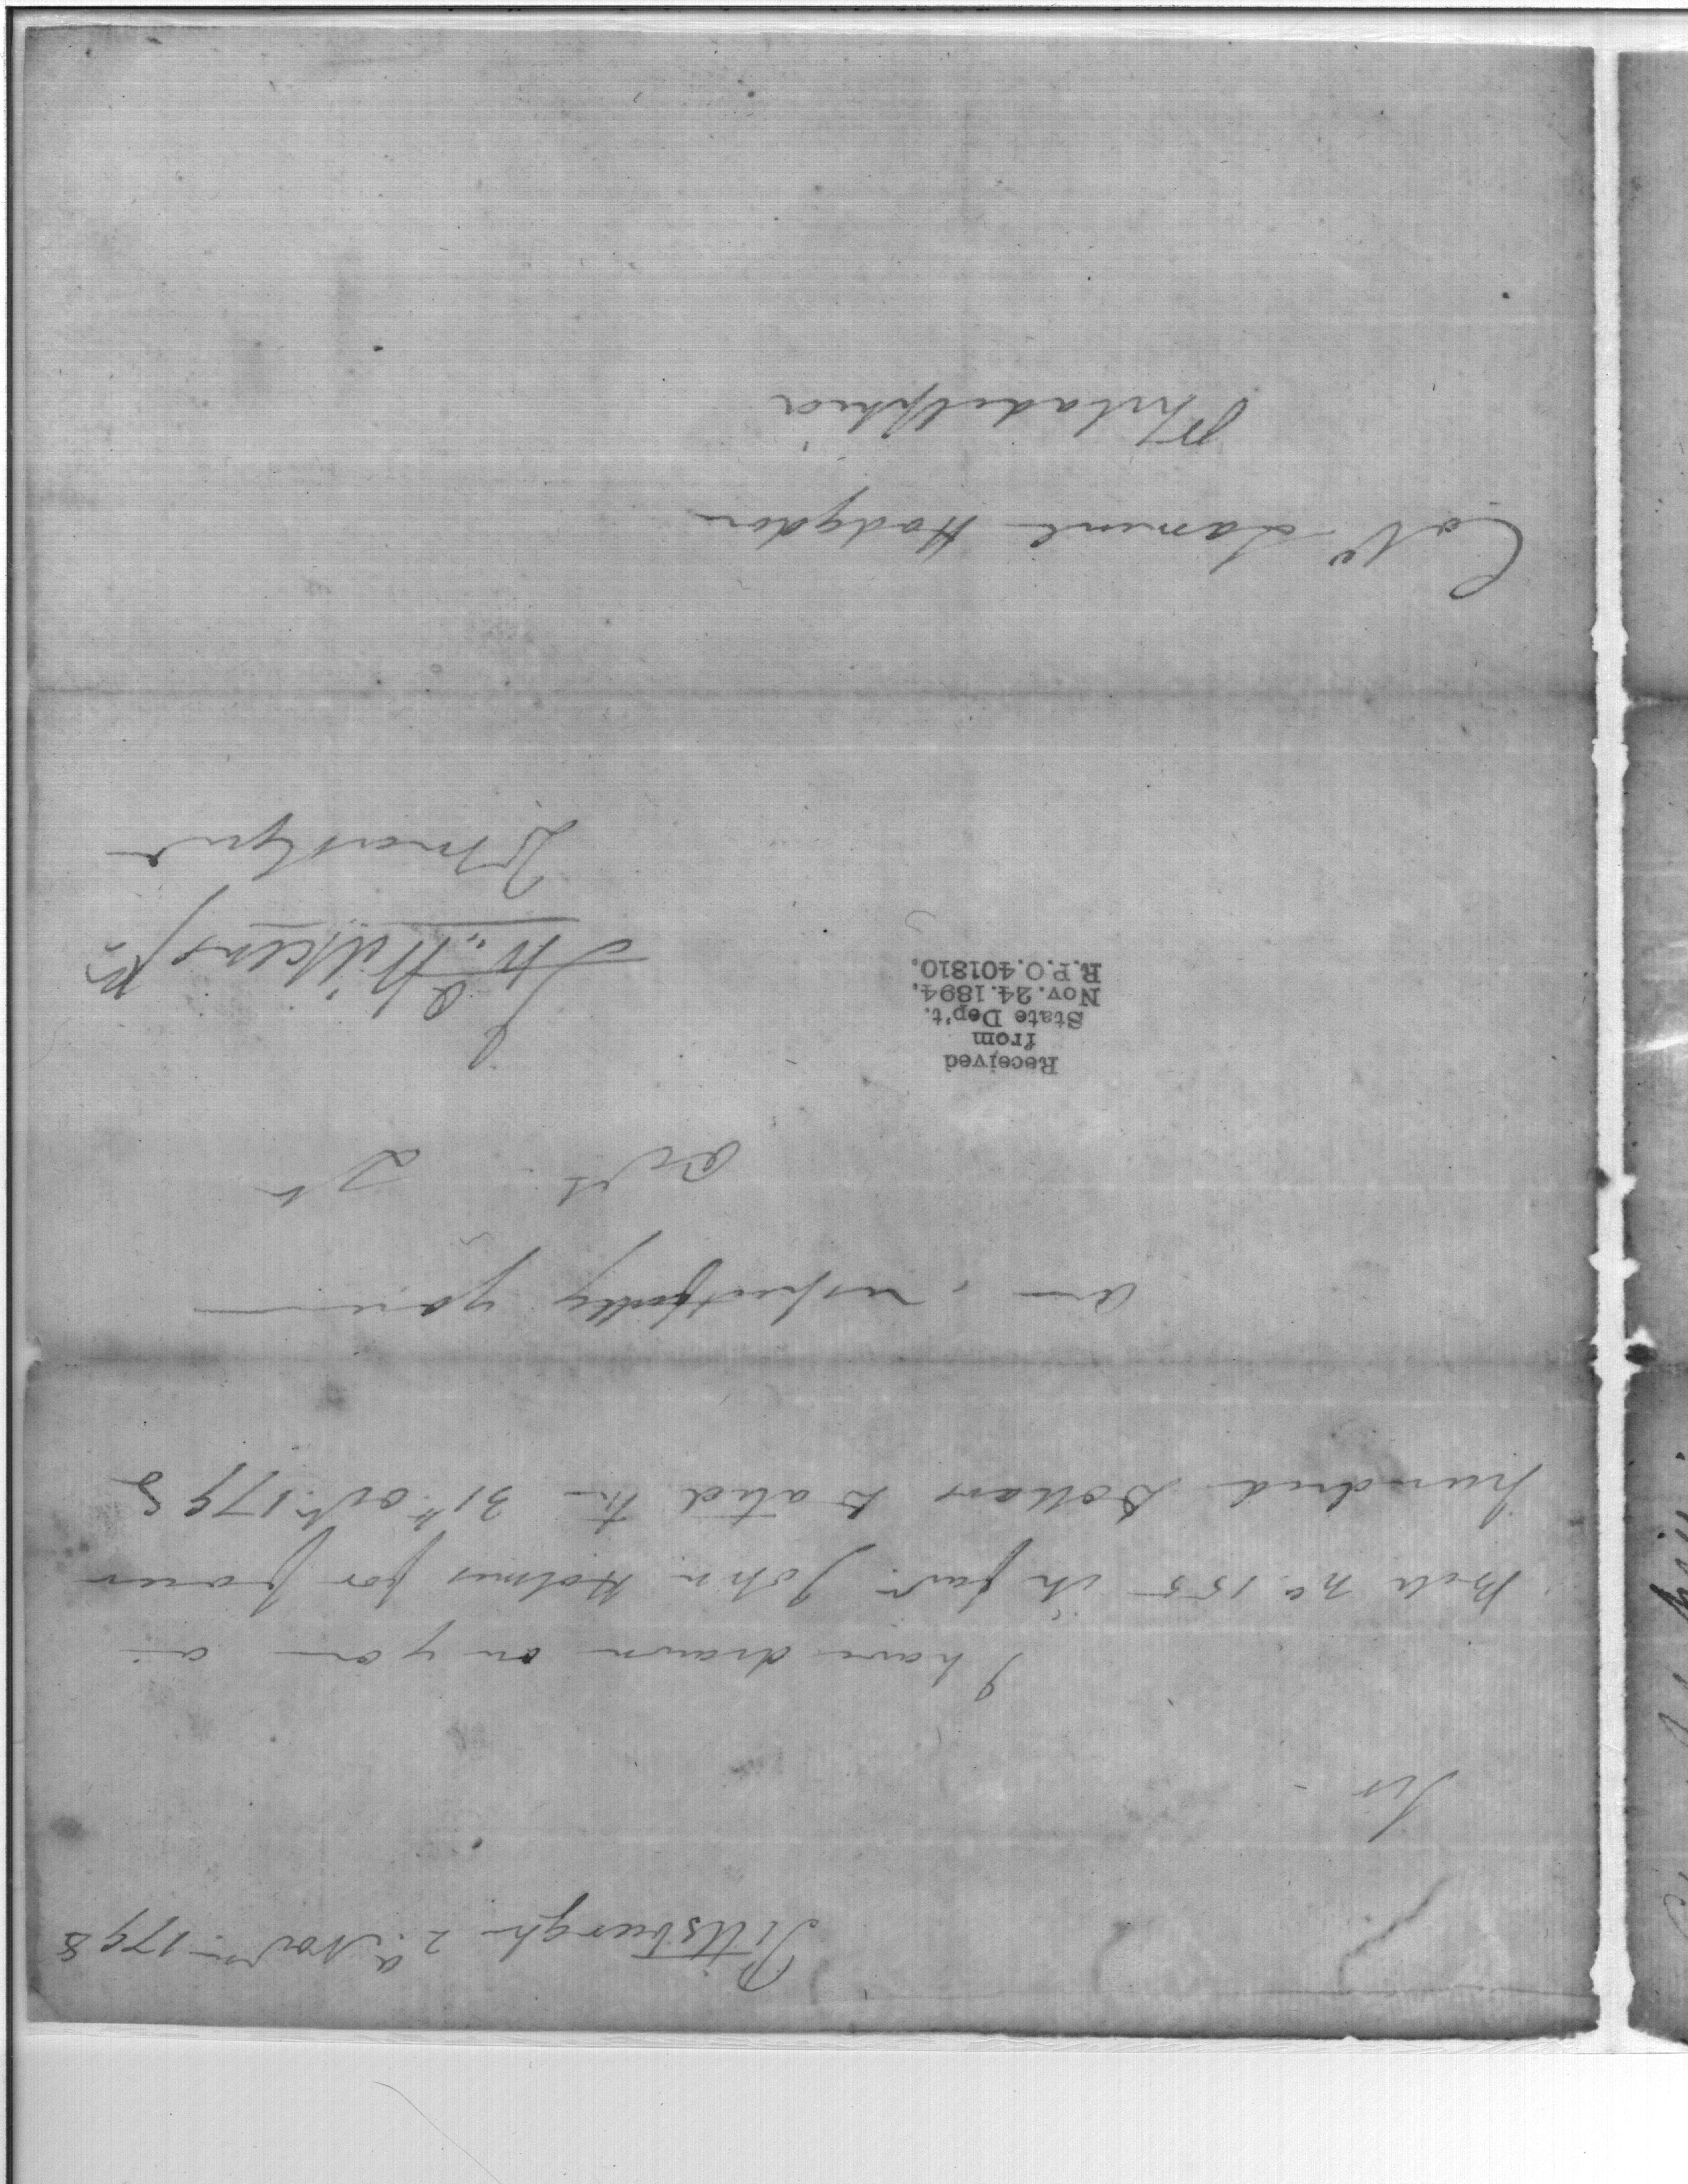 Pittsburgh 2d Novr 1798
Sir
I have drawn on you a
Bill No 155 in favr John Holmes for four
hundred Dollars Dated the 31st Octr 1798
am, respectfully your
Obt St
Jno Wilkins Jr
QrMastGenl
Received
from
State Dep't.
Nov. 24. 1894,
R.P.O. 401810.
Colo Samuel Hodgdon
Philadelphia